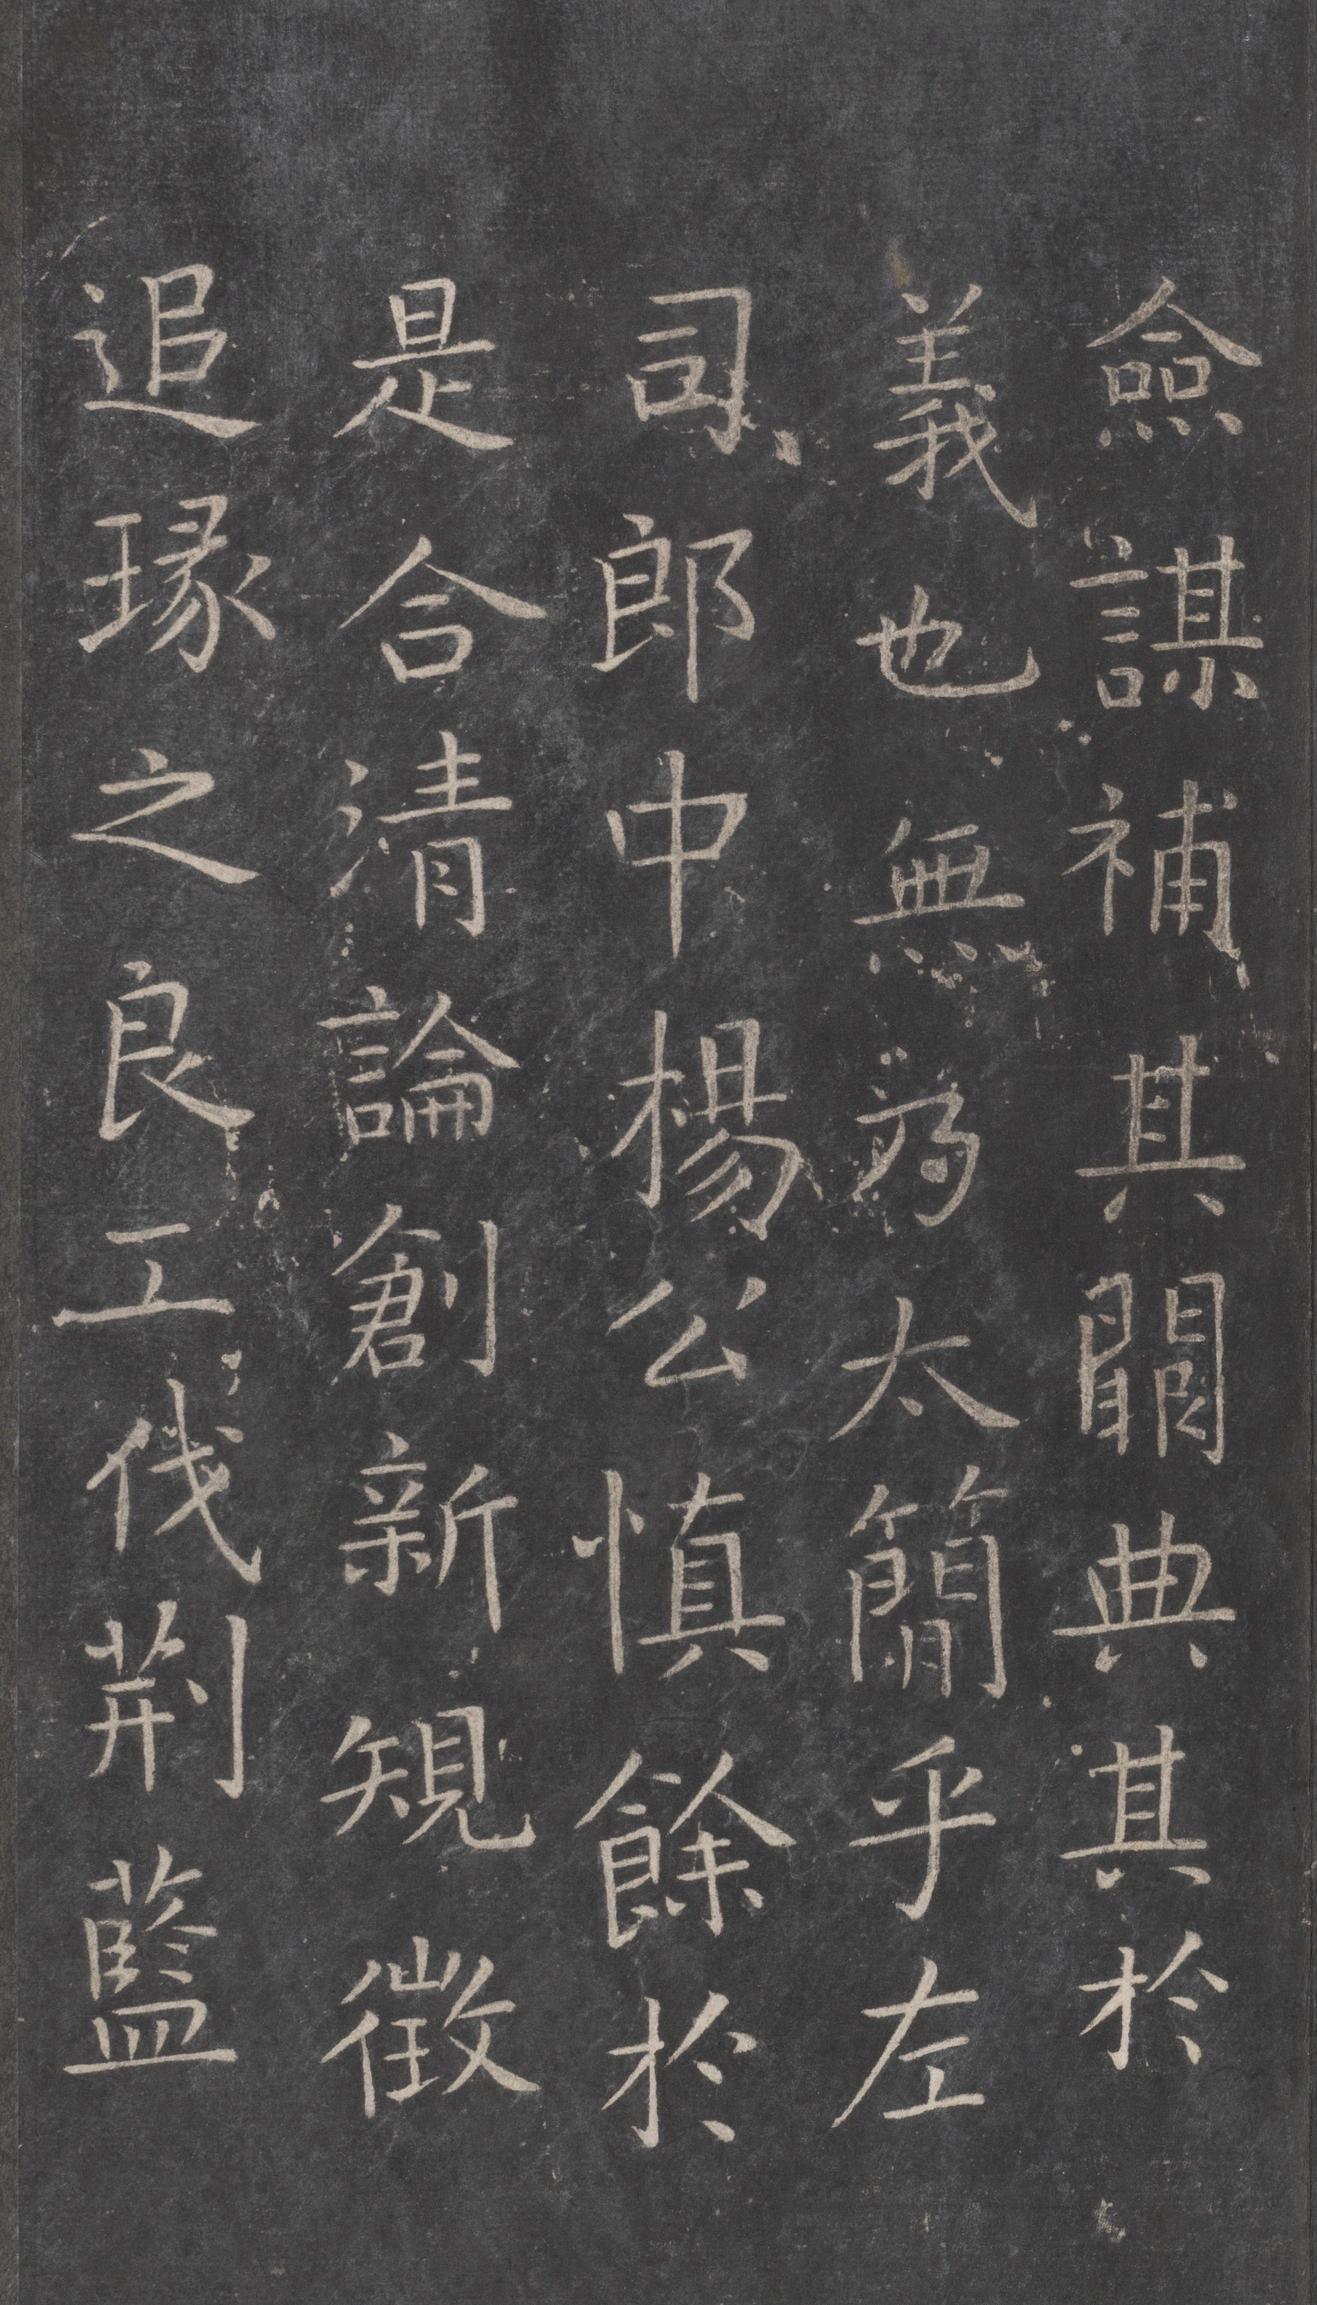 僉謀補其闕典其於
義也無太簡乎左
司郎中楊公慎餘於
是合清論創新規徵
追琢之良工伐荊藍